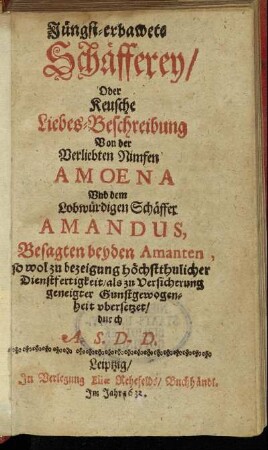 Jüngst-erbawete
Schäfferey/
Oder
Keusche
Liebes-Beschreibung
Von der
Verliebten Nimfen
AMOENA
Und dem
Lobwürdigen Schäffer
AMANDUS,
Besagten beyden Amanten,
so wol zu bezeigung höchstthulicher
Dienstfertigkeit/als zu Versicherung
geneigter Gunstgewogen-
heit vbersetzet/
durch
A. S. D. D.
Leipzig/
In Verlegung Eliæ Rehefelds/ Buchhändl.
Im Jahr 1632.